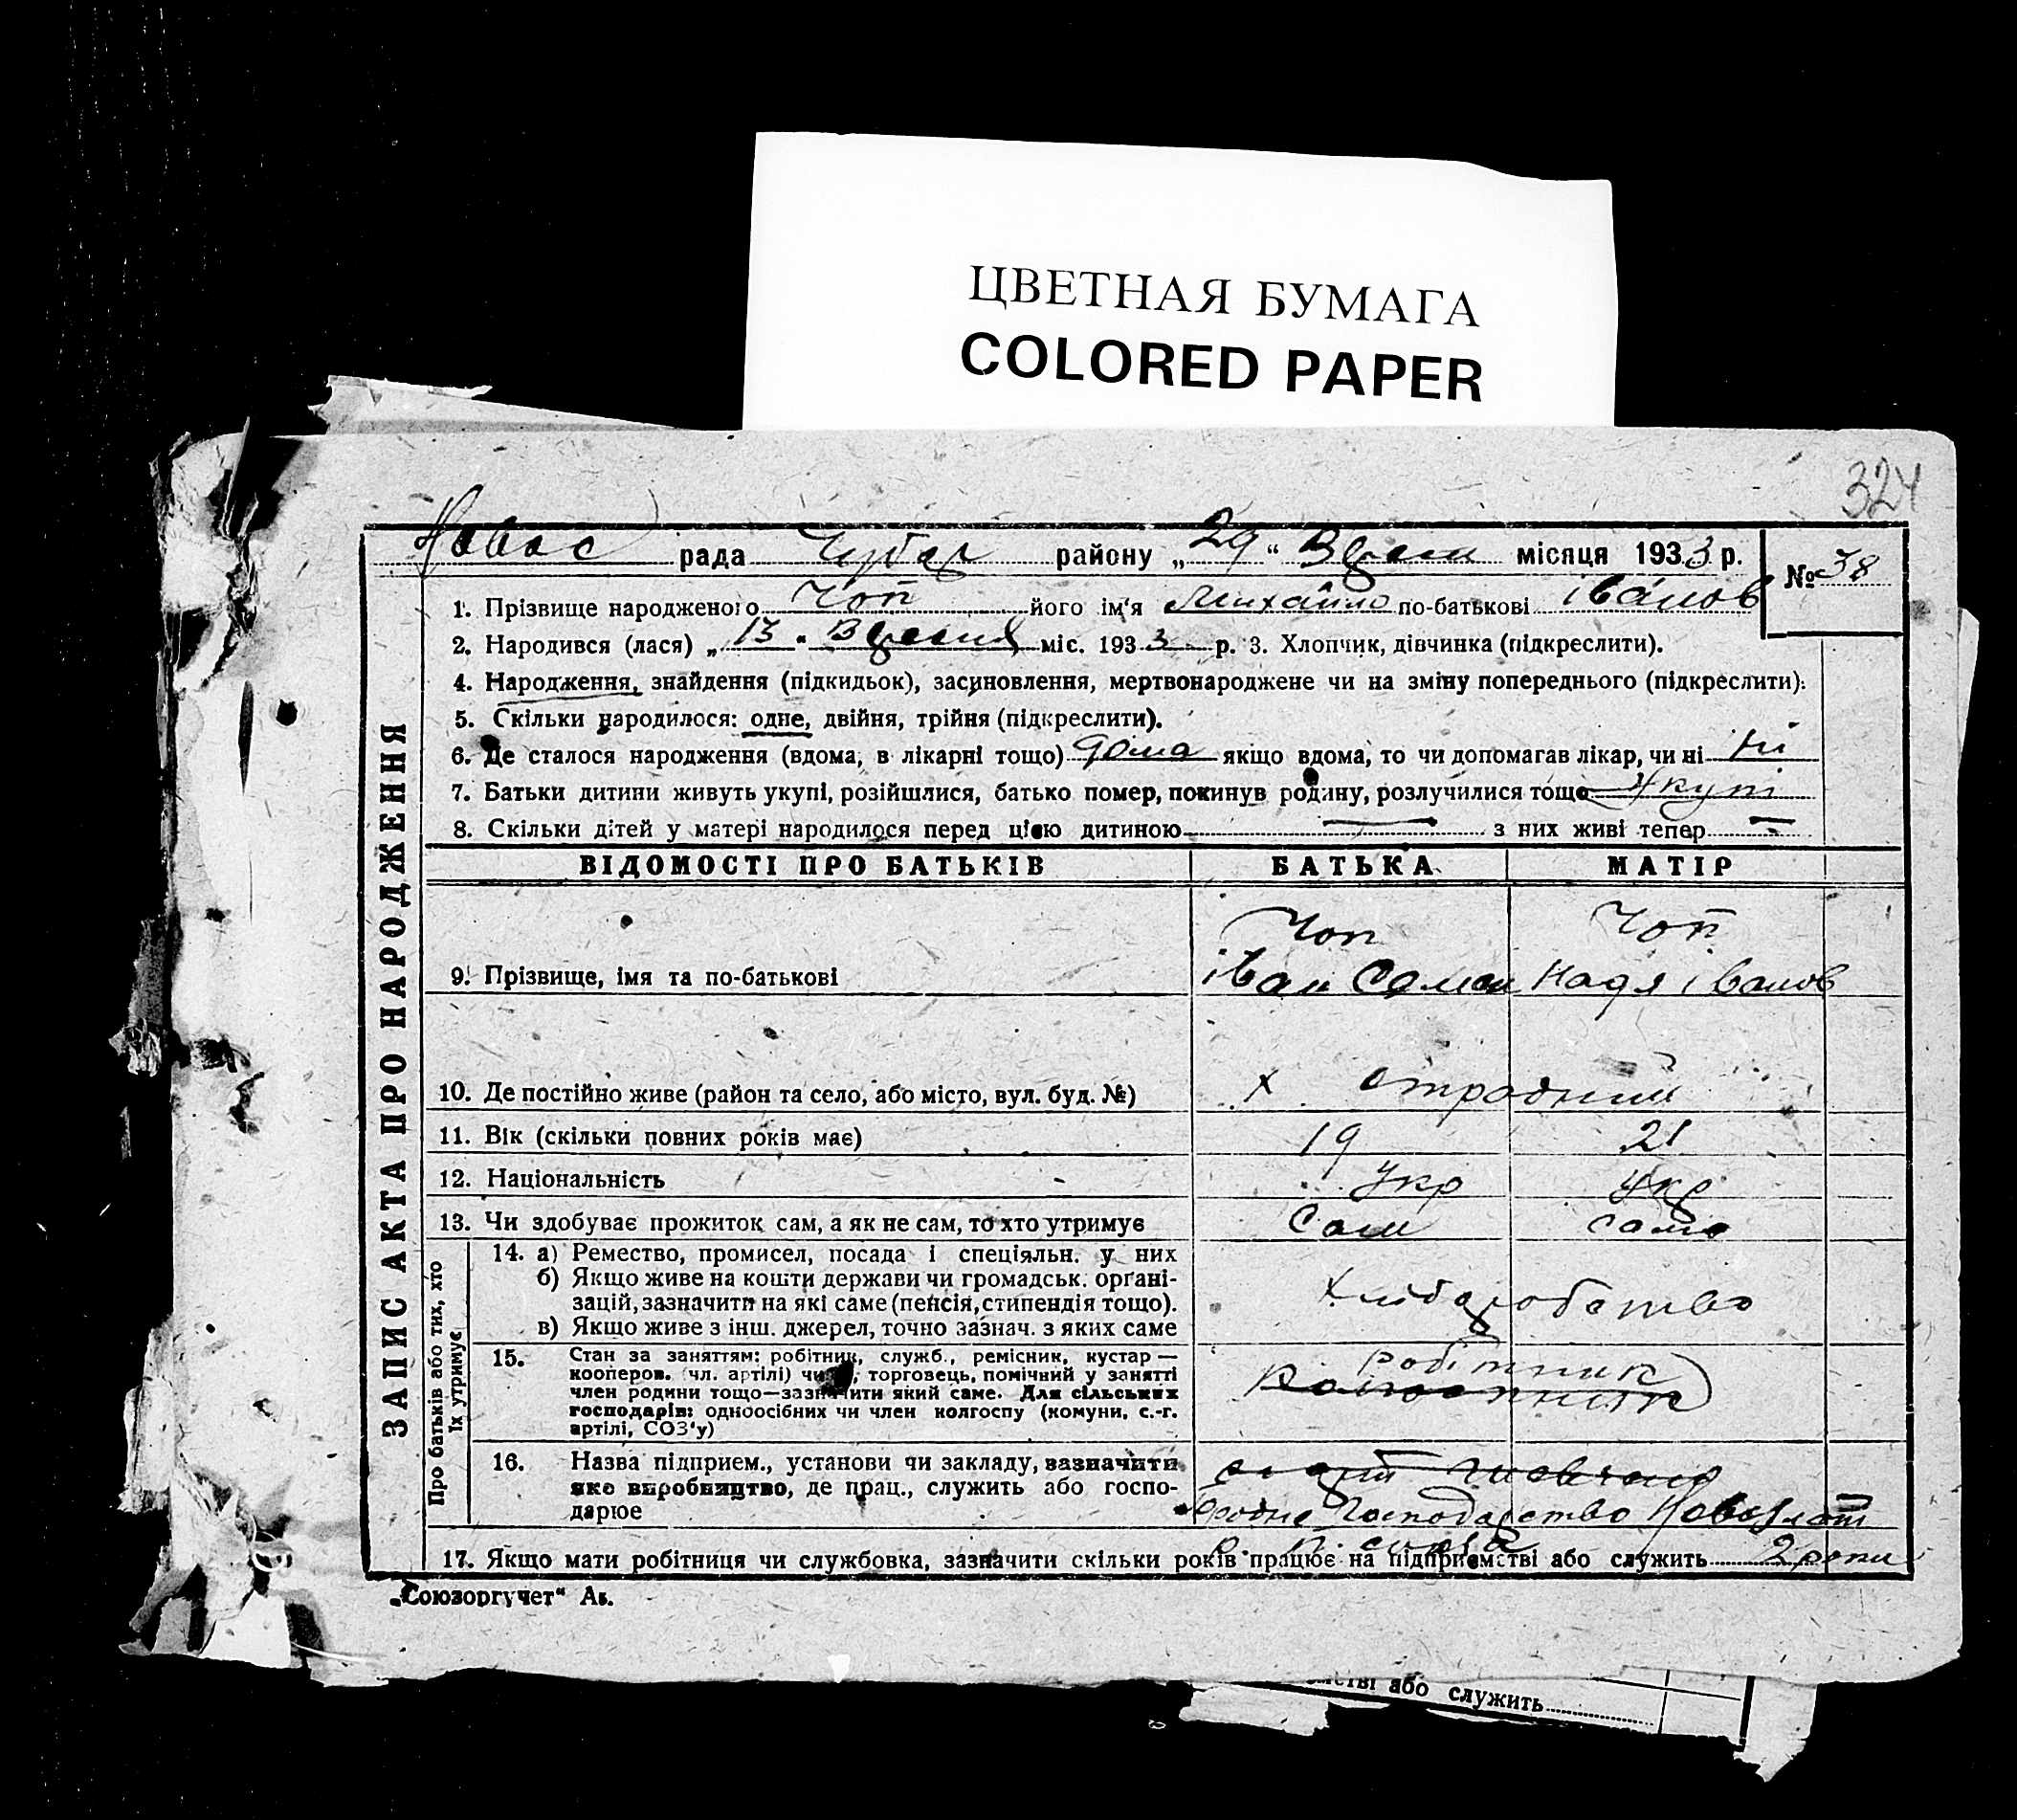 ЦВЕТНАЯ БУМАГА
COLORED PAPER
324
рада Чубар району „29“ Вересн місяця 1933 р. № 38
1. Прізвище народженого Чоп його ім'я Михайло по-батькові Іванов
2. Народився (лася) „13“ Вересня міс. 1933 р. 3. Хлопчик, дівчинка (підкреслити).
4. Народження, знайдення (підкидьок), засиновлення, мертвонароджене чи на зміну попереднього (підкреслити).
5. Скільки народилося: одне, двійня, трійня (підкреслити).
6. Де сталося народження (вдома, в лікарні тощо) дома якщо вдома, то чи допомагав лікар, чи ні Ні
7. Батьки дитини живуть укупі, розійшлися, батько помер, покинув родину, розлучилися тощо Укупі
8. Скільки дітей у матері народилося перед цією дитиною — з них живі тепер —
ЗАПИС АКТА ПРО НАРОДЖЕННЯ
ВІДОМОСТІ ПРО БАТЬКІВ БАТЬКА МАТІР
Чоп Чоп
9. Прізвище, імя та по-батькові Іван Семен Надя Іванов
10. Де постійно живе (район та село, або місто, вул. буд. №) х отрадний
11. Вік (скільки повних років має) 19 21
12. Національність Укр Укр
13. Чи здобуває прожиток сам, а як не сам, то хто утримує Сам сама
Про батьків або тих, хто їх утримує
14. а) Ремество, промисел, посада і спеціяльн. у них
б) Якщо живе на кошти держави чи громадськ. орґані-
зацій, зазначити на які саме (пенсія, стипендія тощо). Хліборобство
в) Якщо живе з інш. джерел, точно зазнач. з яких саме
15. Стан за заняттям: робітник, служб., ремісник, кустар — робітник
кооперов. (чл. артілі) чи , торговець, помічний у занятті Колгоспник
член родини тощо—зазначити який саме. Для сільських
господарів: одноосібних чи член колгоспу (комуни, с.-г.
артілі, СОЗ'у)
16. Назва підприєм., установи чи закладу, зазначити
яке виробництво, де прац., служить або госпо-
дарює Господарство
17. Якщо мати робітниця чи службовка, зазначити скільки років працює на підприємстві або служить 2 роки
„Союзоргучет“ Ак.
або служить